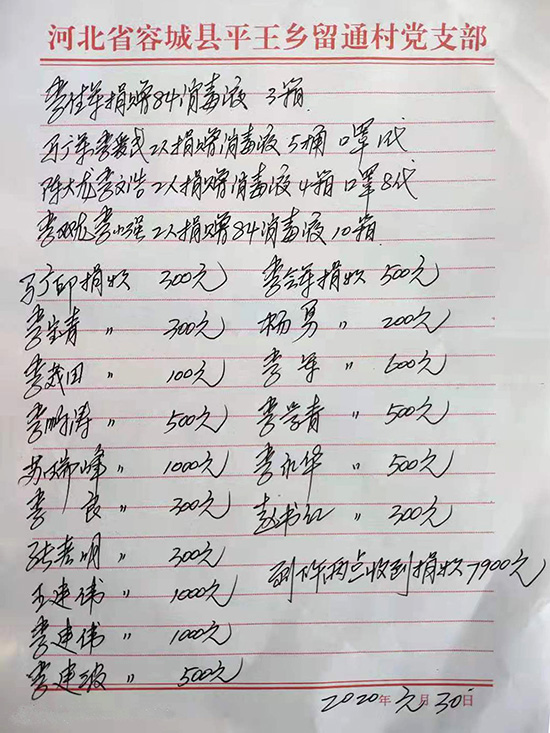 河北省容城县平王乡留通村党支部
李佳军捐赠84消毒液 3箱
马广军李爱民2人捐赠消毒液5桶 口罩1代
陈大龙李文浩2人捐赠消毒液4箱 口罩8代
李双龙李小强2人捐赠84消毒液10箱
马广印捐款 300元 李会军捐款 500元
李宝青 〃 300元 杨男 〃 200元
李茂田 〃 100元 李军 〃 600元
李鹏涛 〃 500元 李学青 〃 500元
苏瑞峰 〃 1000元 李永华 〃 500元
李良 〃 300元 赵书红 〃 300元
张春明 〃 300元 到下午两点收到捐款7900元
王建伟 〃 1000元
李建伟 〃 1000元
李建波 〃 500元
2020年元月30日